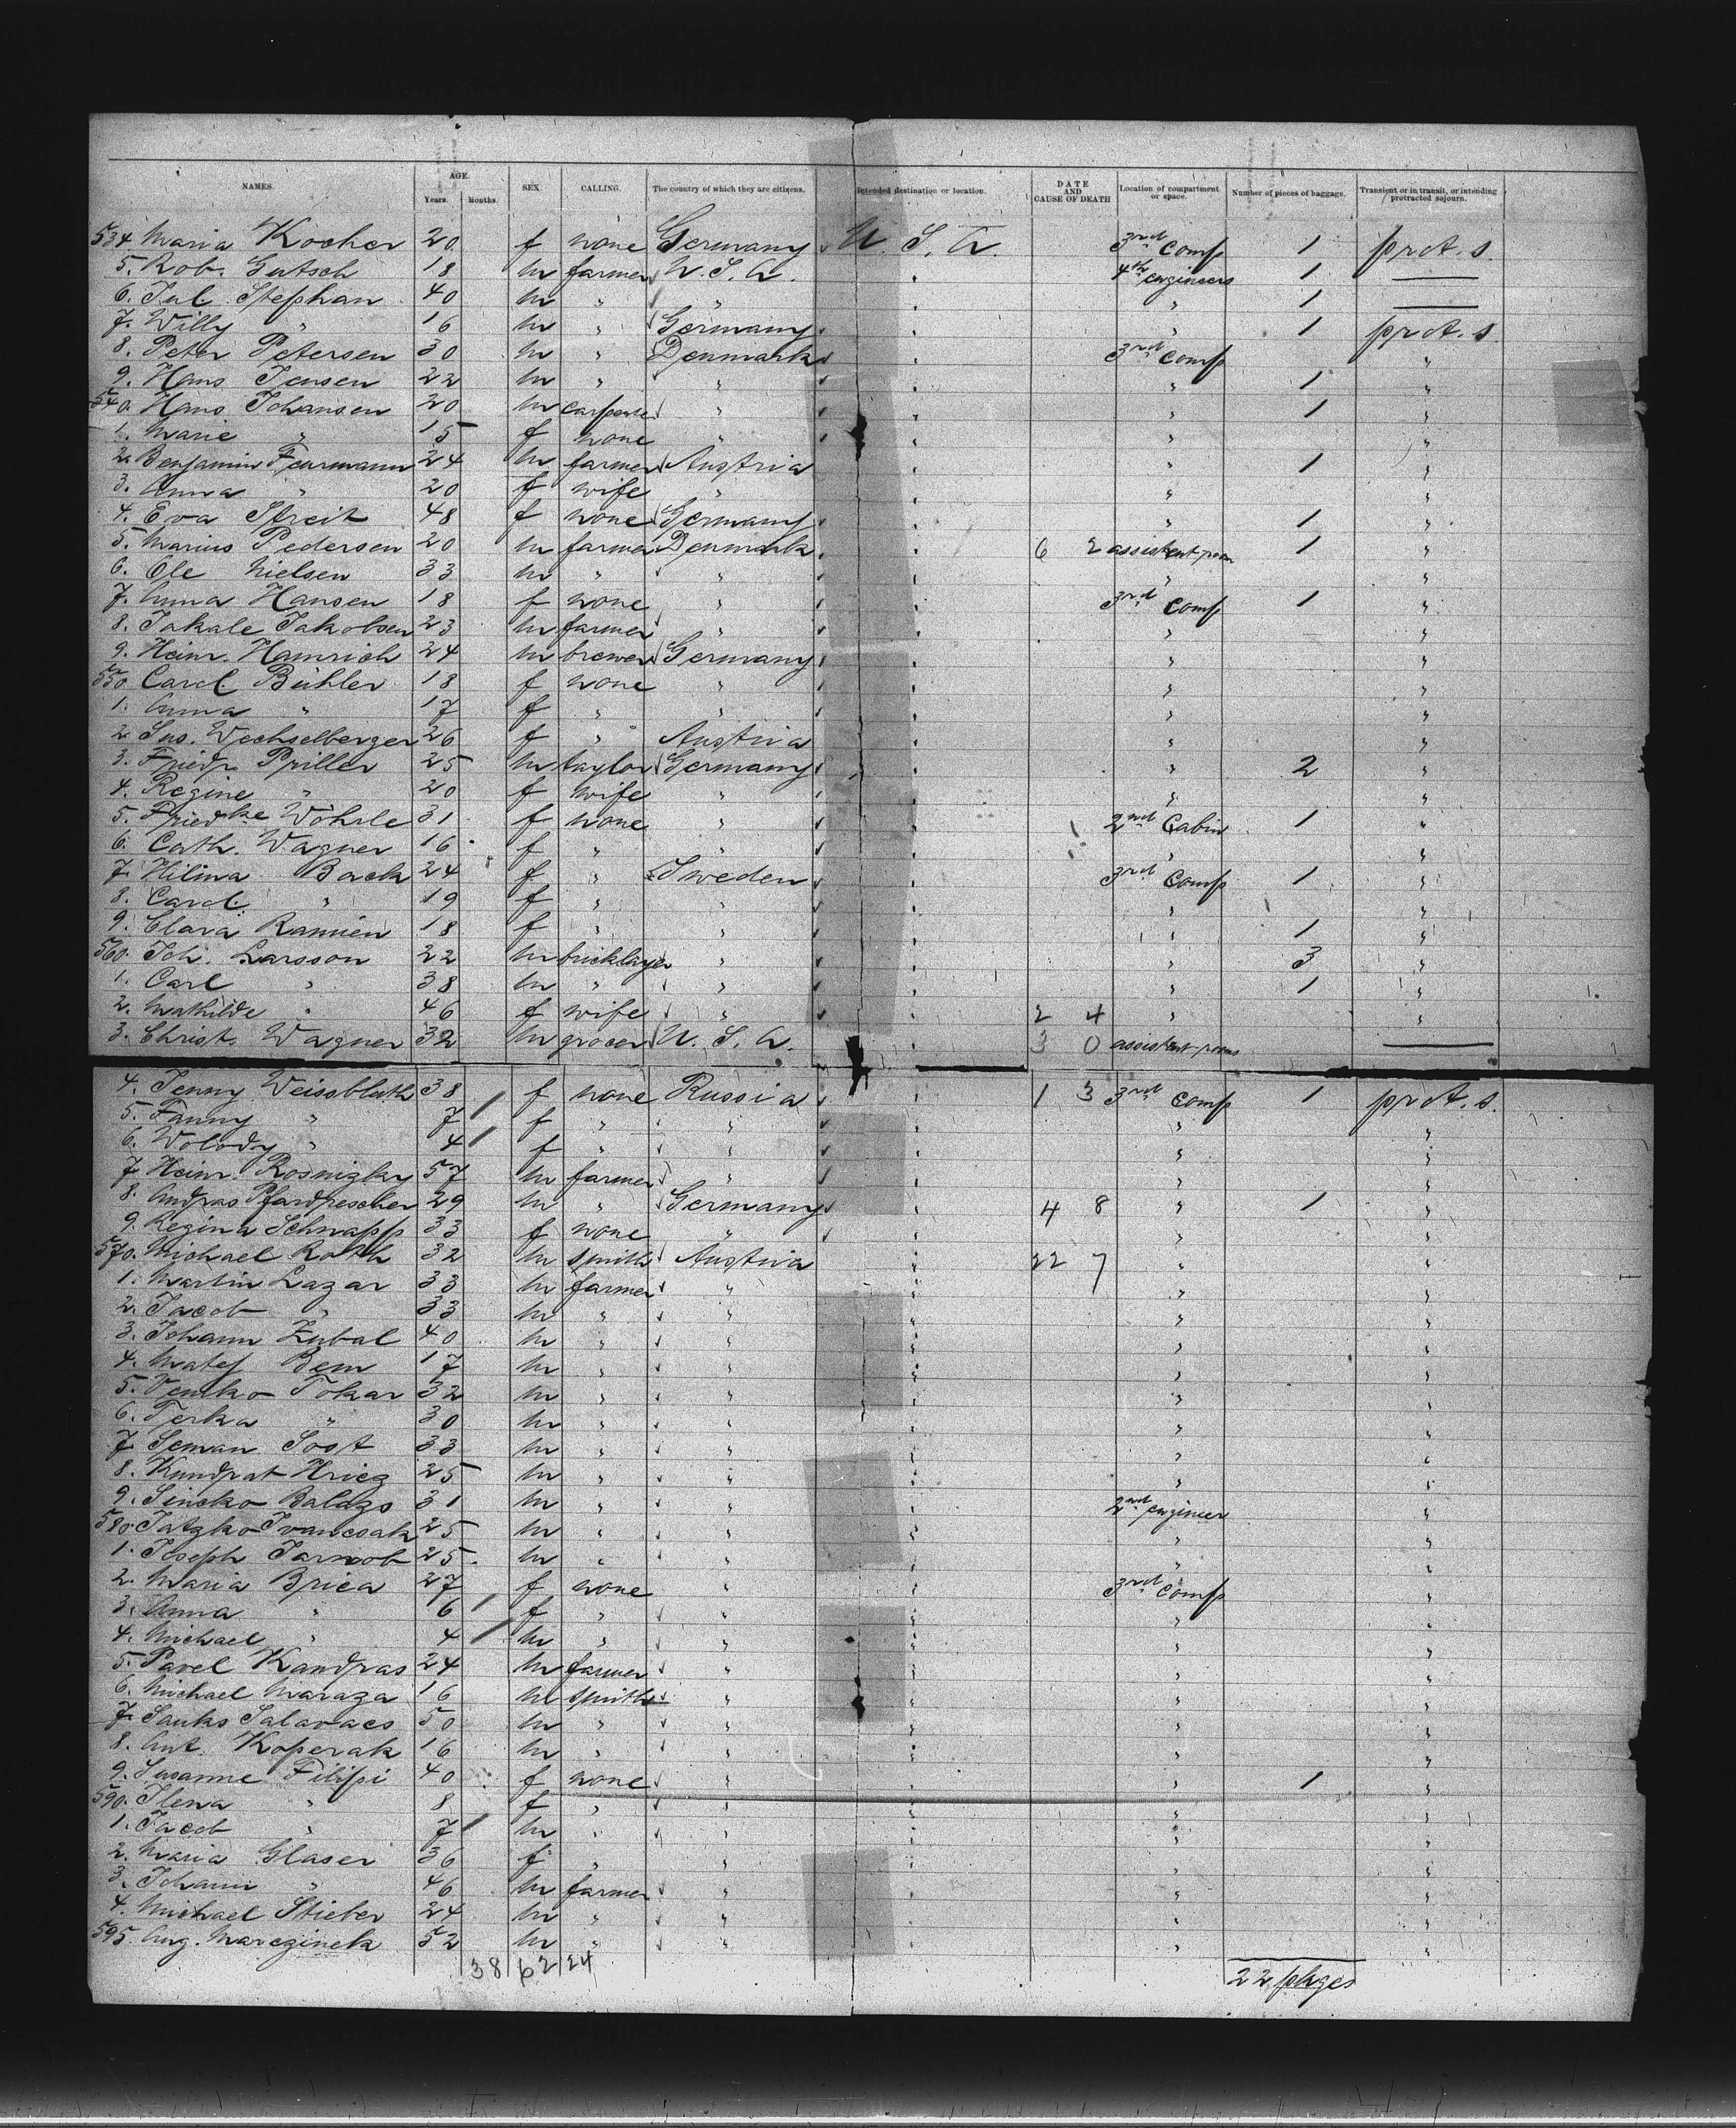 NAMES. AGE. Years. Months. SEX. CALLING. The country of which they are citizens. Intended destination or location. DATE AND CAUSE OF DEATH Location of compartment or space. Number of pieces of baggage. Transient or in transit, or intending protracted sojourn.
534. Maria Kocher 20 f none Germany U. S. A. 3rd Comp 1 prot. s.
5. Rob. Gutsch 18 m farmer U. S. A. " 4th engineers 1 —
6. Jul. Stephan 40 m " " " " 1 —
7. Willy " 16 m " Germany " " 1 prot. s.
8. Peter Petersen 30 m " Denmark " 3rd Comp "
9. Hans Jensen 22 m " " " " 1 "
540. Hans Johansen 20 m carpenter " " " 1 "
1. Marie " 15 f none " " " "
2. Benjamin Feurmann 24 m farmer Austria " " 1 "
3. Anna " 20 f wife " " " "
4. Eva Streit 48 f none Germany " " 1 "
5. Marius Pedersen 20 m farmer Denmark " 6 2 assistent room 1 "
6. Ole Nielsen 33 m " " " " "
7. Anna Hansen 18 f none " " 3rd Comp 1 "
8. Jakale Jakobsen 23 m farmer " " " "
9. Heinr. Hamrich 24 m brewer Germany " " "
550. Carol. Bühler 18 f none " " " "
1. Anna " 17 f " " " " "
2. Sus. Wechselberger 26 f " Austria " " "
3. Friedr. Priller 25 m taylor Germany " " 2 "
4. Regine " 20 f wife " " " "
5. Friedke Wöhrle 31 f none " " 2nd Cabin 1 "
6. Cath. Wagner 16 f " " " " "
7. Hilma Back 24 f " Sweden " 3rd Comp 1 "
8. Carol. " 19 f " " " " "
9. Clara Ramien 18 f " " " " 1 "
560. Joh. Larsson 22 m bricklayer " " " 3 "
1. Carl " 38 m " " " " 1 "
2. Mathilde " 46 f wife " " 2 4 " "
3. Christ. Wagner 32 m grocer U. S. A. " 3 0 assistent rooms —
4. Jenny Weissbluth 38 f none Russia " 1 3 3rd Comp 1 prot. s.
5. Fanny " 7 f " " " " "
6. Wolody " 4 f " " " " "
7. Heinr. Rosnizky 57 m farmer " " " "
8. Andras Pfardrescher 29 m " Germany " 4 8 " 1 "
9. Regina Schnapp 33 f none " " " "
570. Michael Roth 32 m smith Austria " 22 7 " "
1. Martin Lazar 33 m farmer " " " "
2. Jacob " 33 m " " " " "
3. Johann Zubal 40 m " " " " "
4. Matej Bem 17 m " " " " "
5. Vemko Tokar 32 m " " " " "
6. Terka " 30 m " " " " "
7. Seman Sost 33 m " " " " "
8. Kundrat Hricz 25 m " " " " "
9. Sincko Balazs 31 m " " " 2nd engineer "
580. Jatzko Ivancsak 25 m " " " " "
1. Joseph Jarnob 25 m " " " " "
2. Maria Brica 27 f none " " 3rd Comp "
3. Anna " 6 f " " " " "
4. Michael " 4 m " " " " "
5. Pavel Kandras 24 m farmer " " " "
6. Michael Maraza 16 m smith " " " "
7. Sauks Salavacs 50 m " " " " "
8. Ant. Koperak 16 m " " " " "
9. Susanne Filipi 40 f none " " " 1 "
590. Ilena " 8 f " " " " "
1. Jacob " 7 m " " " " "
2. Maria Glaser 36 f " " " " "
3. Johann " 46 m farmer " " " "
4. Michael Stieber 24 m " " " " "
595. Aug. Marczinek 52 m " " " " "
38 62 24 22 pkges